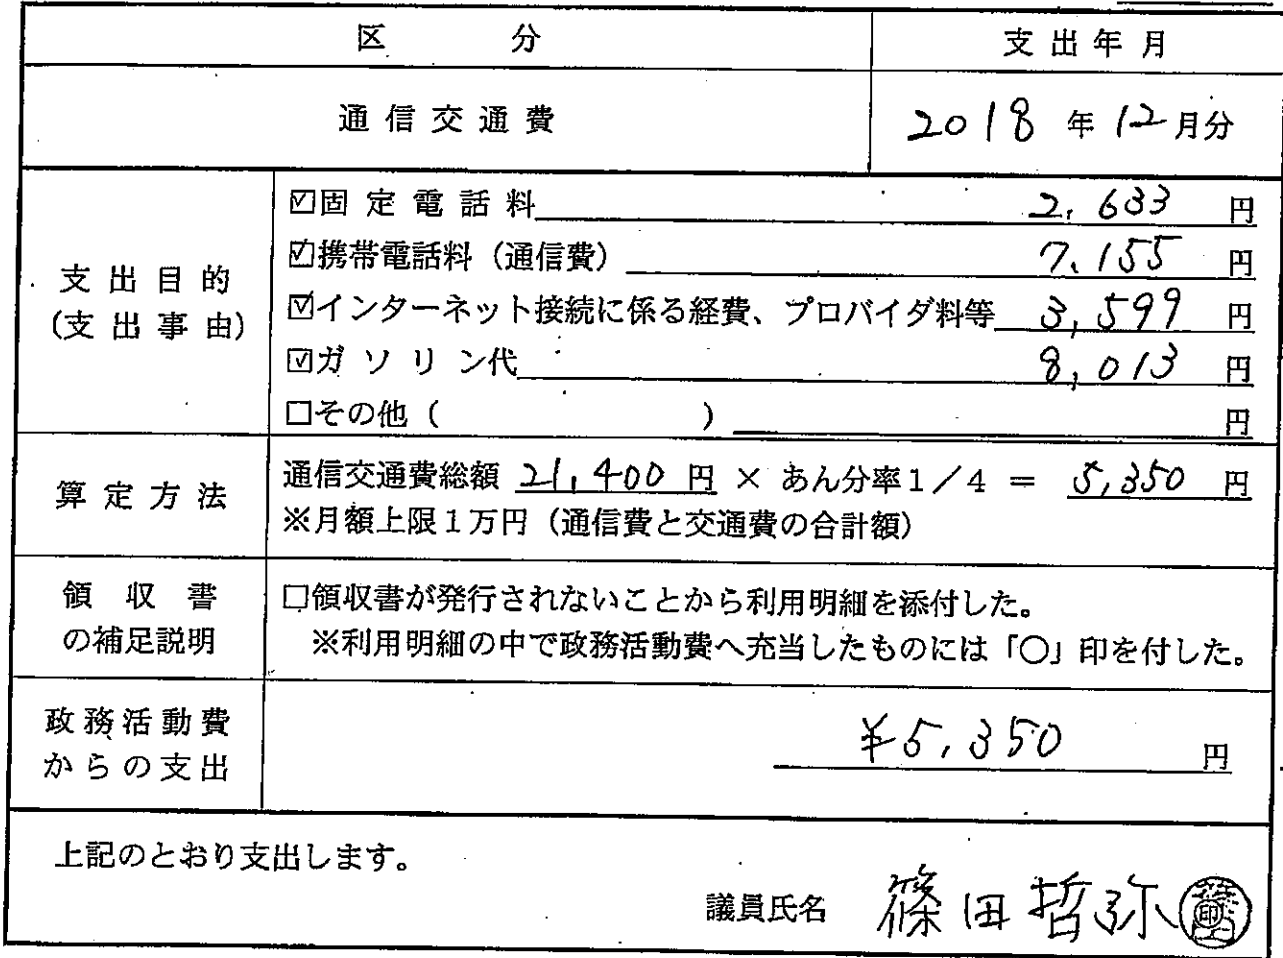 区 分 支出年月
通信交通費 2018 年 12 月分
支出目的
(支出事由)
☑固定電話料 2,633 円
☑携帯電話料（通信費） 7,155 円
☑インターネット接続に係る経費、プロバイダ料等 3,599 円
☑ガソリン代 8,013 円
□その他（ ） 円
算定方法
通信交通費総額 21,400 円 × あん分率1／4 ＝ 5,350 円
※月額上限１万円（通信費と交通費の合計額）
領収書
の補足説明
□領収書が発行されないことから利用明細を添付した。
※利用明細の中で政務活動費へ充当したものには「○」印を付した。
政務活動費
からの支出
¥5,350 円
上記のとおり支出します。
議員氏名 篠田哲弥